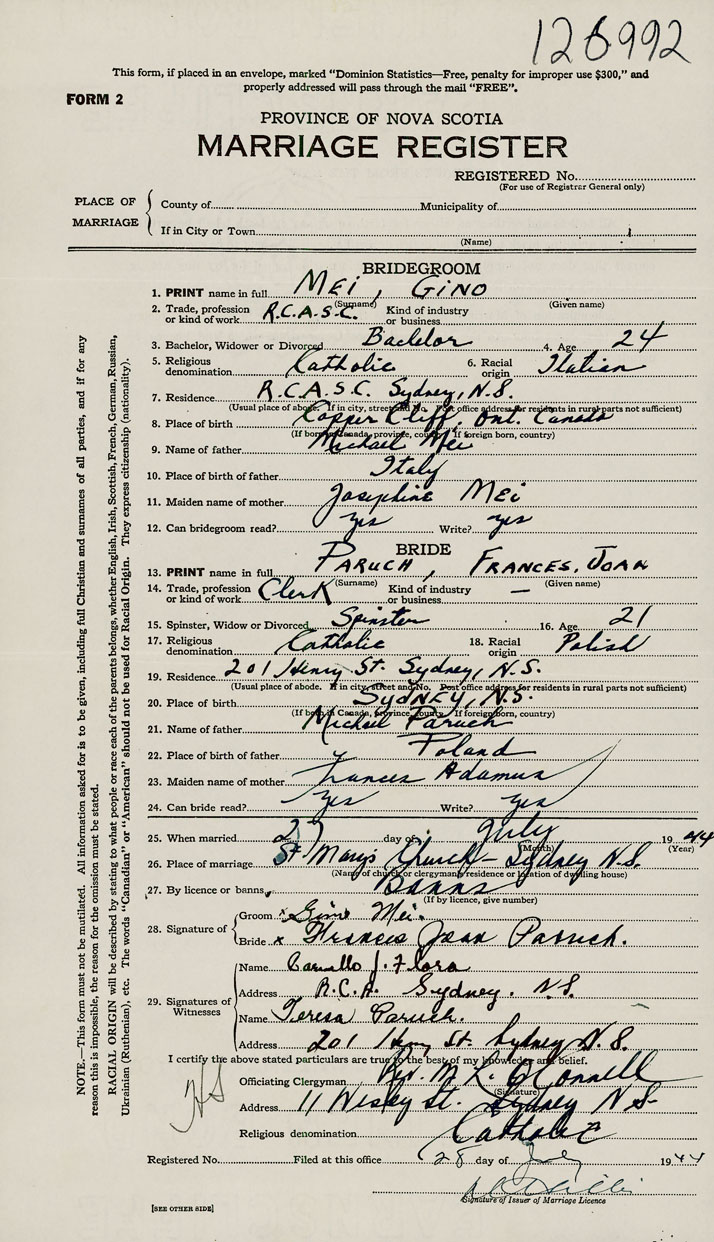 126992
This form, if placed in an envelope, marked "Dominion Statistics—Free, penalty for improper use $300," and
properly addressed will pass through the mail "FREE".
FORM 2
PROVINCE OF NOVA SCOTIA
MARRIAGE REGISTER
REGISTERED No.
(For use of Registrar General only)
PLACE OF MARRIAGE
County of Municipality of
If in City or Town
(Name)
BRIDEGROOM
1. PRINT name in full MEI, GINO
(Surname) (Given name)
2. Trade, profession or kind of work R.C.A.S.C. Kind of industry or business
3. Bachelor, Widower or Divorced Bachelor 4. Age 24
5. Religious denomination Catholic 6. Racial origin Italian
7. Residence R.C.A.S.C. Sydney, N.S.
(Usual place of abode. If in city, street and No. Post office address for residents in rural parts not sufficient)
8. Place of birth Copper Cliff, Ont. Canada
(If born in Canada, province, county. If foreign born, country)
9. Name of father Michael Mei
10. Place of birth of father Italy
11. Maiden name of mother Josephine Mei
12. Can bridegroom read? yes Write? yes
BRIDE
13. PRINT name in full PARUCH, FRANCES, JOAN
(Surname) (Given name)
14. Trade, profession or kind of work Clerk Kind of industry or business —
15. Spinster, Widow or Divorced Spinster 16. Age 21
17. Religious denomination Catholic 18. Racial origin Polish
19. Residence 201 Henry St. Sydney, N.S.
(Usual place of abode. If in city, street and No. Post office address for residents in rural parts not sufficient)
20. Place of birth SYDNEY, N.S.
(If born in Canada, province, county. If foreign born, country)
21. Name of father Michael Paruch
22. Place of birth of father Poland
23. Maiden name of mother Frances Adamus
24. Can bride read? yes Write? yes
25. When married 27 day of July 1944
(Month) (Year)
26. Place of marriage St Mary's Church - Sydney N.S.
(Name of church or clergyman's residence or location of dwelling house)
27. By licence or banns Banns
(If by licence, give number)
28. Signature of
Groom x Gino Mei.
Bride x Frances Joan Paruch.
29. Signatures of Witnesses
Name J. Flora
Address R.C.A. Sydney. N.S.
Name Teresa Paruch.
Address 201 Henry St. Sydney N.S.
I certify the above stated particulars are true to the best of my knowledge and belief.
Officiating Clergyman Rev. M. K. O'Connell
(Signature)
Address 11 Wesley St. Sydney N.S.
Religious denomination Catholic
Registered No. Filed at this office 28 day of July 1944
Signature of Issuer of Marriage Licence
[SEE OTHER SIDE]
NOTE.—This form must not be mutilated. All information asked for is to be given, including full Christian and surnames of all parties, and if for any
reason this is impossible, the reason for the omission must be stated.
RACIAL ORIGIN will be described by stating to what people or race each of the parents belongs, whether English, Irish, Scottish, French, German, Russian,
Ukrainian (Ruthenian), etc. The words "Canadian" or "American" should not be used for Racial Origin. They express citizenship (nationality).